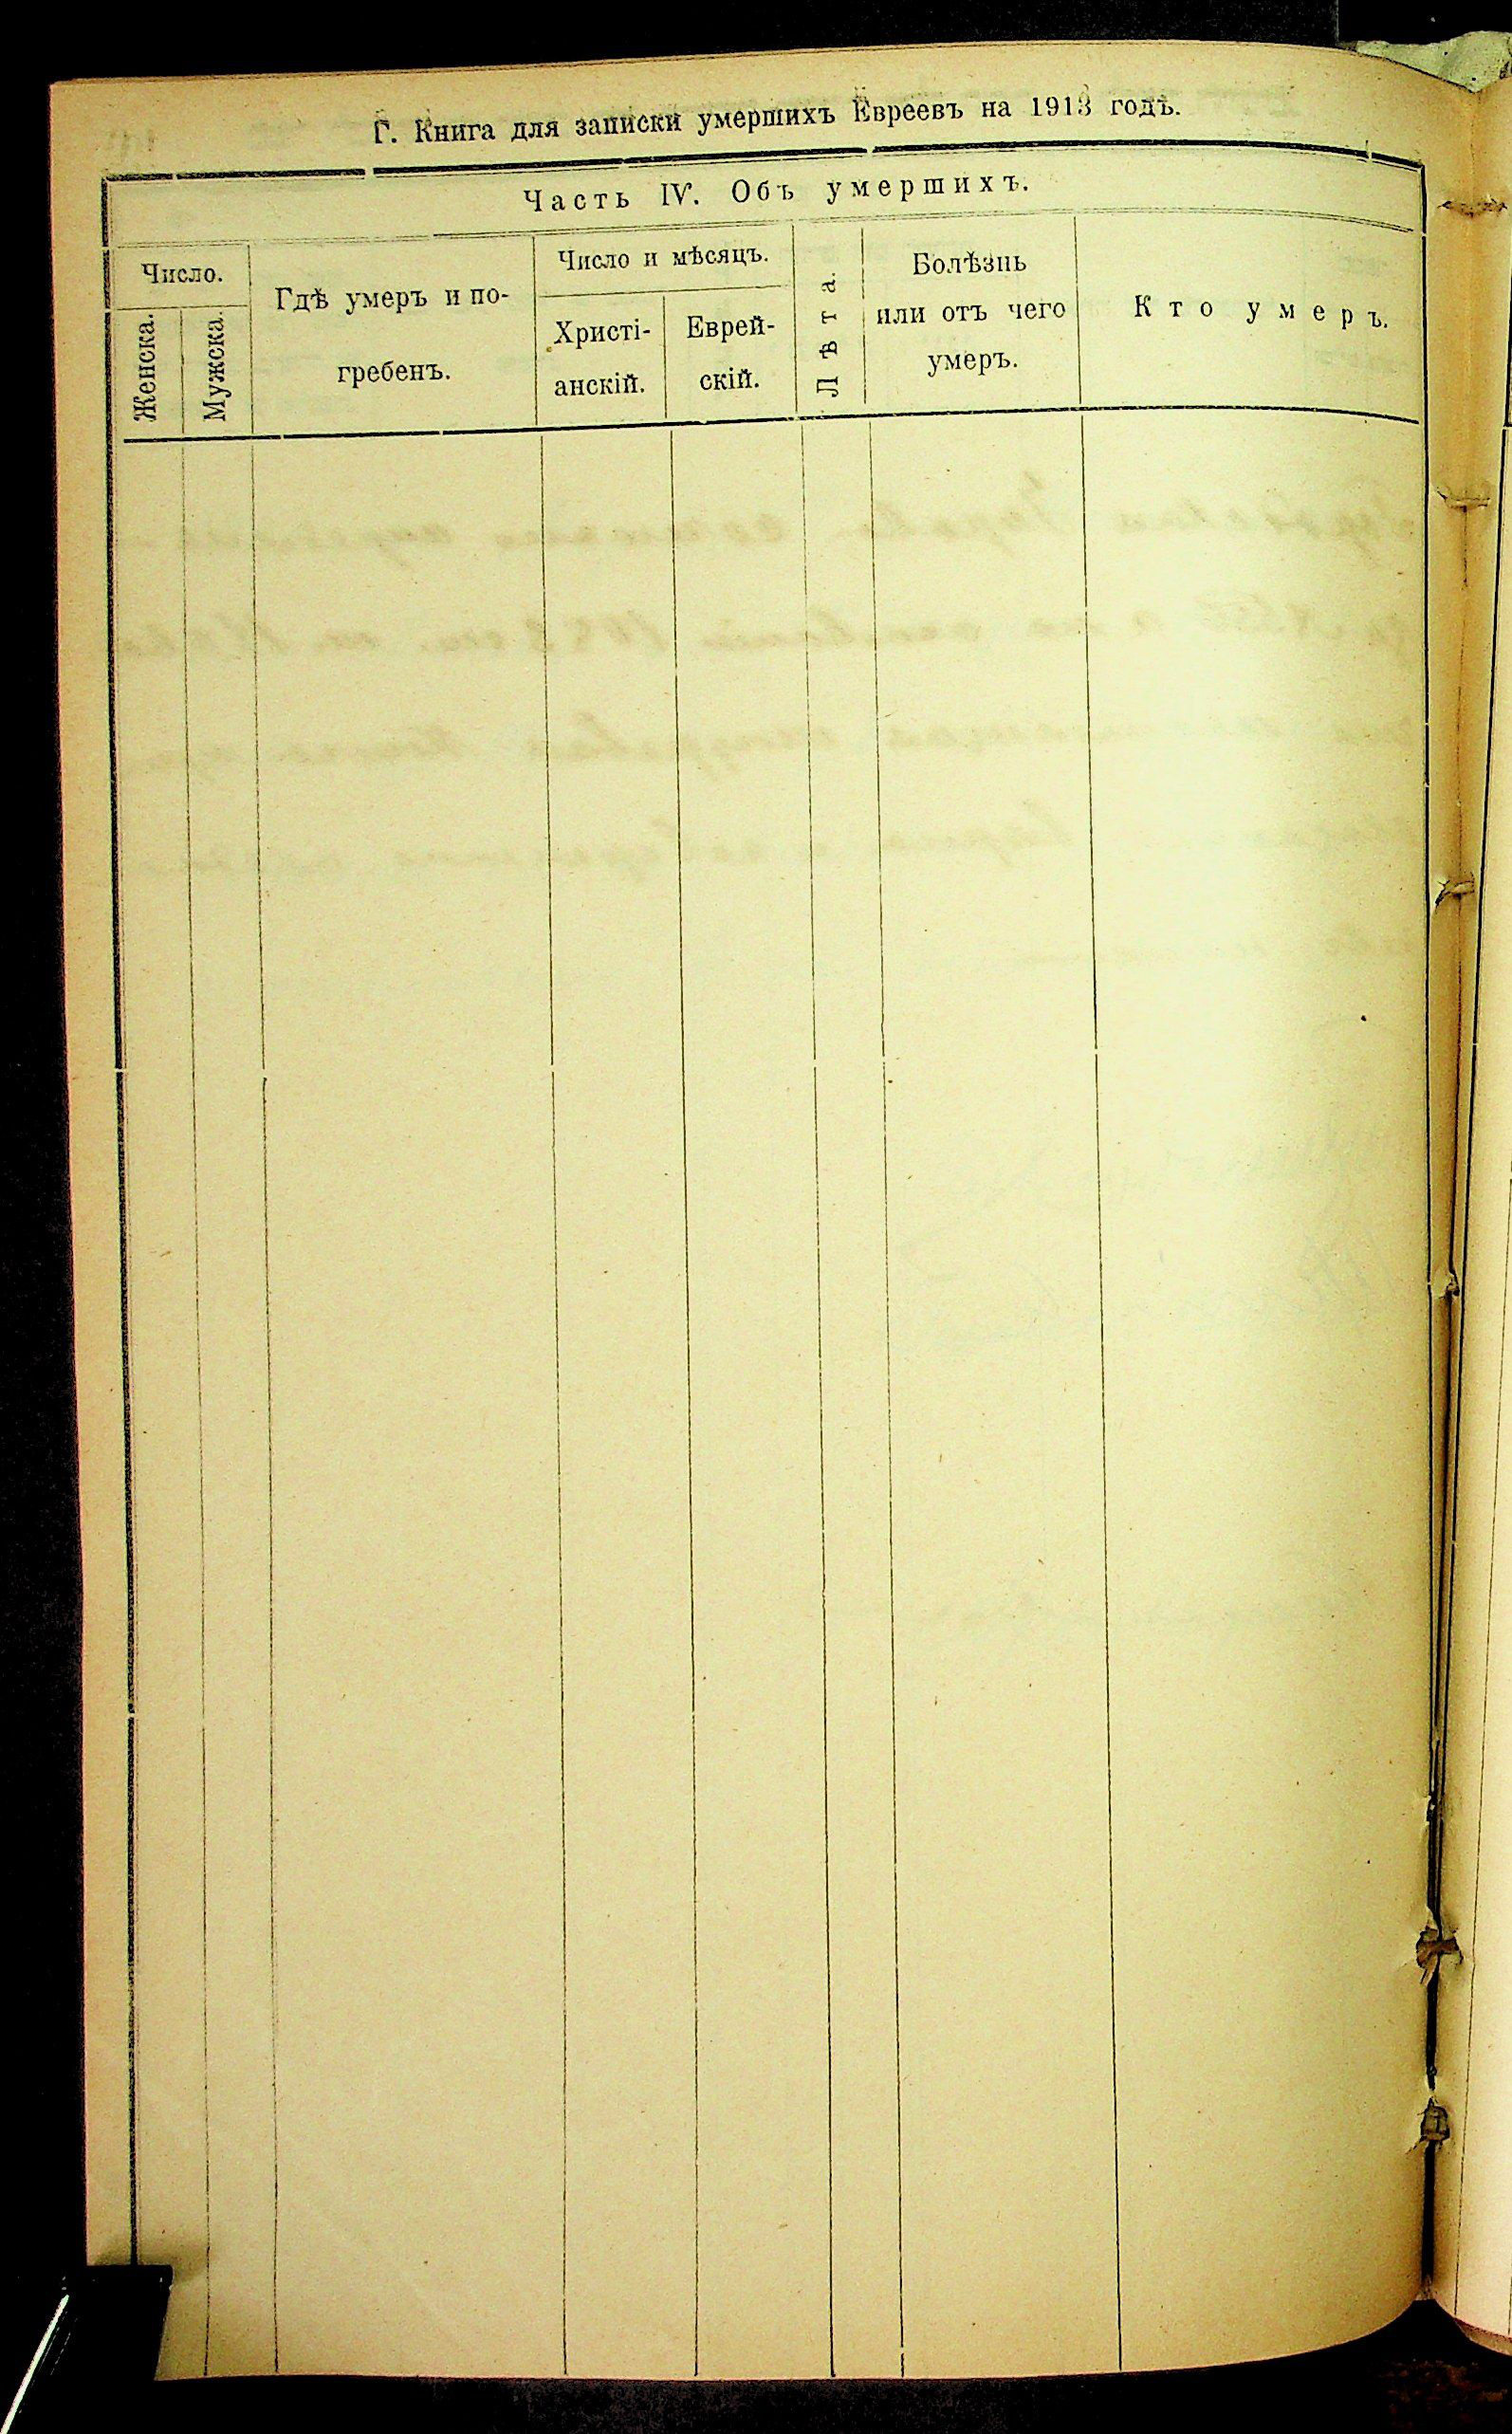 Г. Книга для записки умершихъ Евреевъ на 1913 годъ.
Часть IV. Объ умершихъ.
Число.
Женска.
Мужска.
Гдѣ умеръ и по-
гребенъ.
Число и мѣсяцъ.
Христі-
анскій.
Еврей-
скій.
Лѣта.
Болѣзнь
или отъ чего
умеръ.
Кто умеръ.